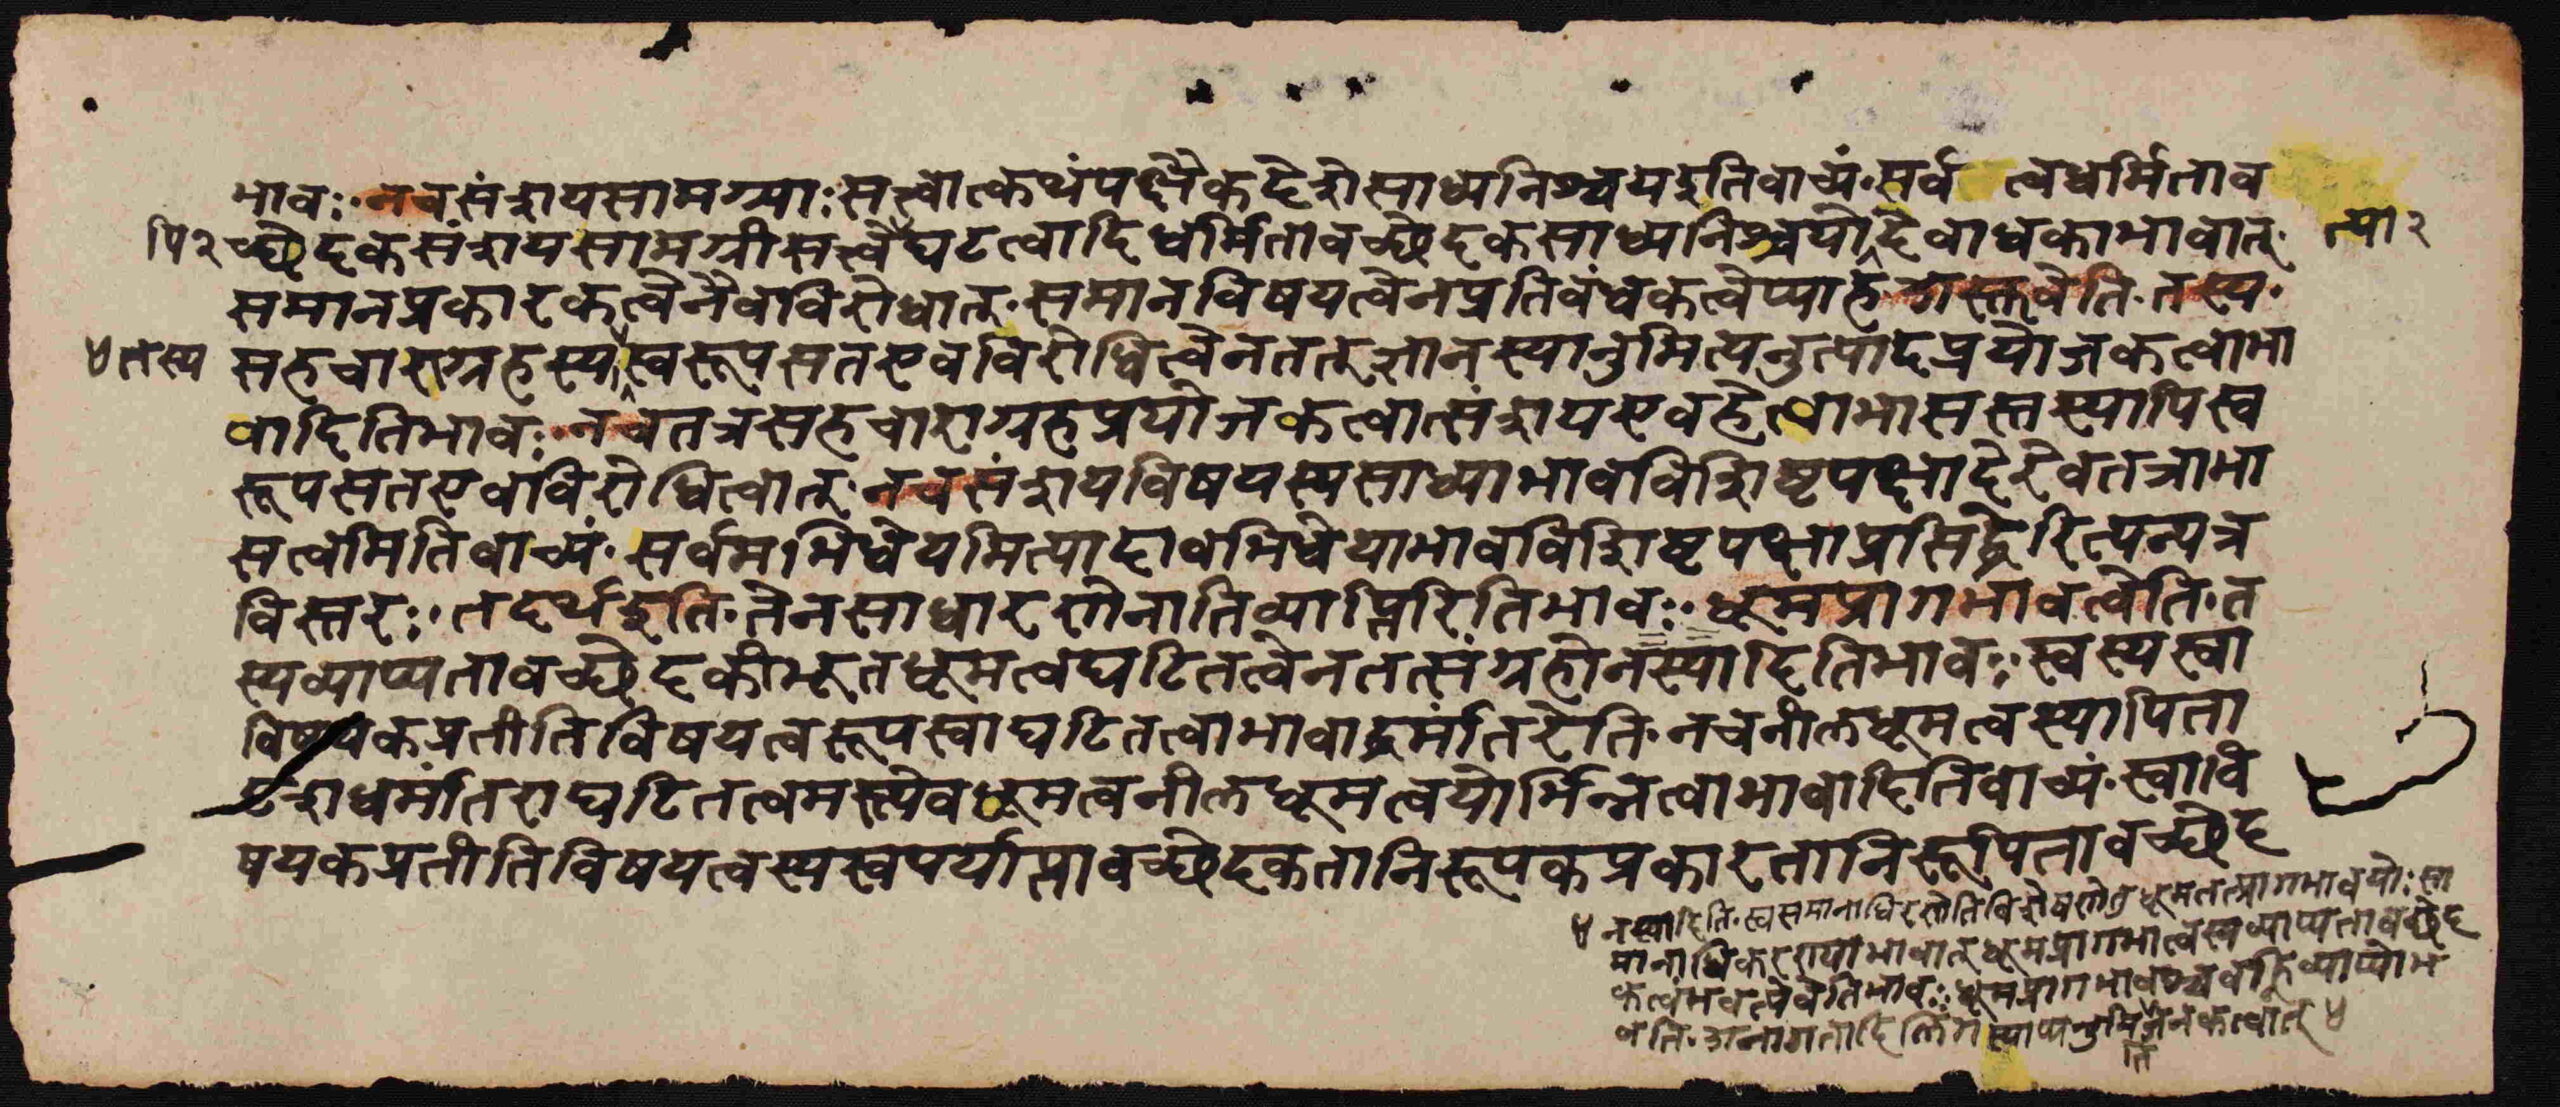 भावः॰ नचसंशयसामग्र्याः सत्त्वात्कथंपक्षैकदेशेसाध्यनिश्चयइतिवाच्यं॰ सर्वत्वधर्मिताव
च्छेदकसंशयसामग्रीसत्त्वेघटत्वादिधर्मितावच्छेदकसाध्यनिश्चयोदेवाधकाभावात्॰
पि२
त्पा२
समानप्रकारकत्वेनैवविरोधात्॰ समानविषयत्वेनप्रतिवंधकत्वेप्याह अस्तवेति॰ तस्य॰
सहचाराग्रहस्यस्वरूपसतएवविरोधित्वेनतत्ज्ञानस्यानुमित्यनुत्पादप्रयोजकत्वाभा
४तस्य
वादितिभावः॰ नचतत्रसहचाराग्रहप्रयोजकत्वात्संशयएवहेत्वाभासस्तस्यापिस्व
रूपसतएवविरोधित्वात्॰ नचसंशयविषयस्यसाध्याभावविशिष्टपक्षादेरेवतत्राभा
सत्वमितिवाच्यं॰ सर्वमभिधेयमित्यादावभिधेयाभावविशिष्टपक्षाप्रसिद्धेरित्यन्यत्र
विस्तरः॰ तदर्थइति॰ तेनसाधारणेनातिव्याप्तिरितिभावः॰ धूमप्रागभावत्वेति॰ त
स्यव्याप्यतावच्छेदकीभूतधूमत्वघटितत्वेनतत्संग्रहोनस्यादितिभावः॰ स्वस्यस्वा
विषयकप्रतीतिविषयत्वरूपस्वाघटितत्वाभावाद्धर्मांतरेति॰ नचनीलधूमत्वस्यापिता
दृशधर्मांतराघटितत्वमस्त्येवधूमत्वनीलधूमत्वयोर्भिन्नत्वाभावादितिवाच्यं॰ स्वावि
षयकप्रतीतिविषयत्वस्यस्वपर्याप्तावच्छेदकतानिरूपकप्रकारतानिरूपितावच्छेद
४ नस्यादिति॰ स्वसमानाधिरणेतिविशेषणेतुधूमतत्प्रागभावयोः सा
मानाधिकरण्याभावात्धूमप्रागभात्वस्यव्याप्यतावच्छेद
कत्वंभवत्येवेतिभावः॰ धूमप्रागभावश्चवह्निव्याप्योभ
वति॰ अनागतादिलिंगस्याप्यनुमिजनकत्वात् ४
ति